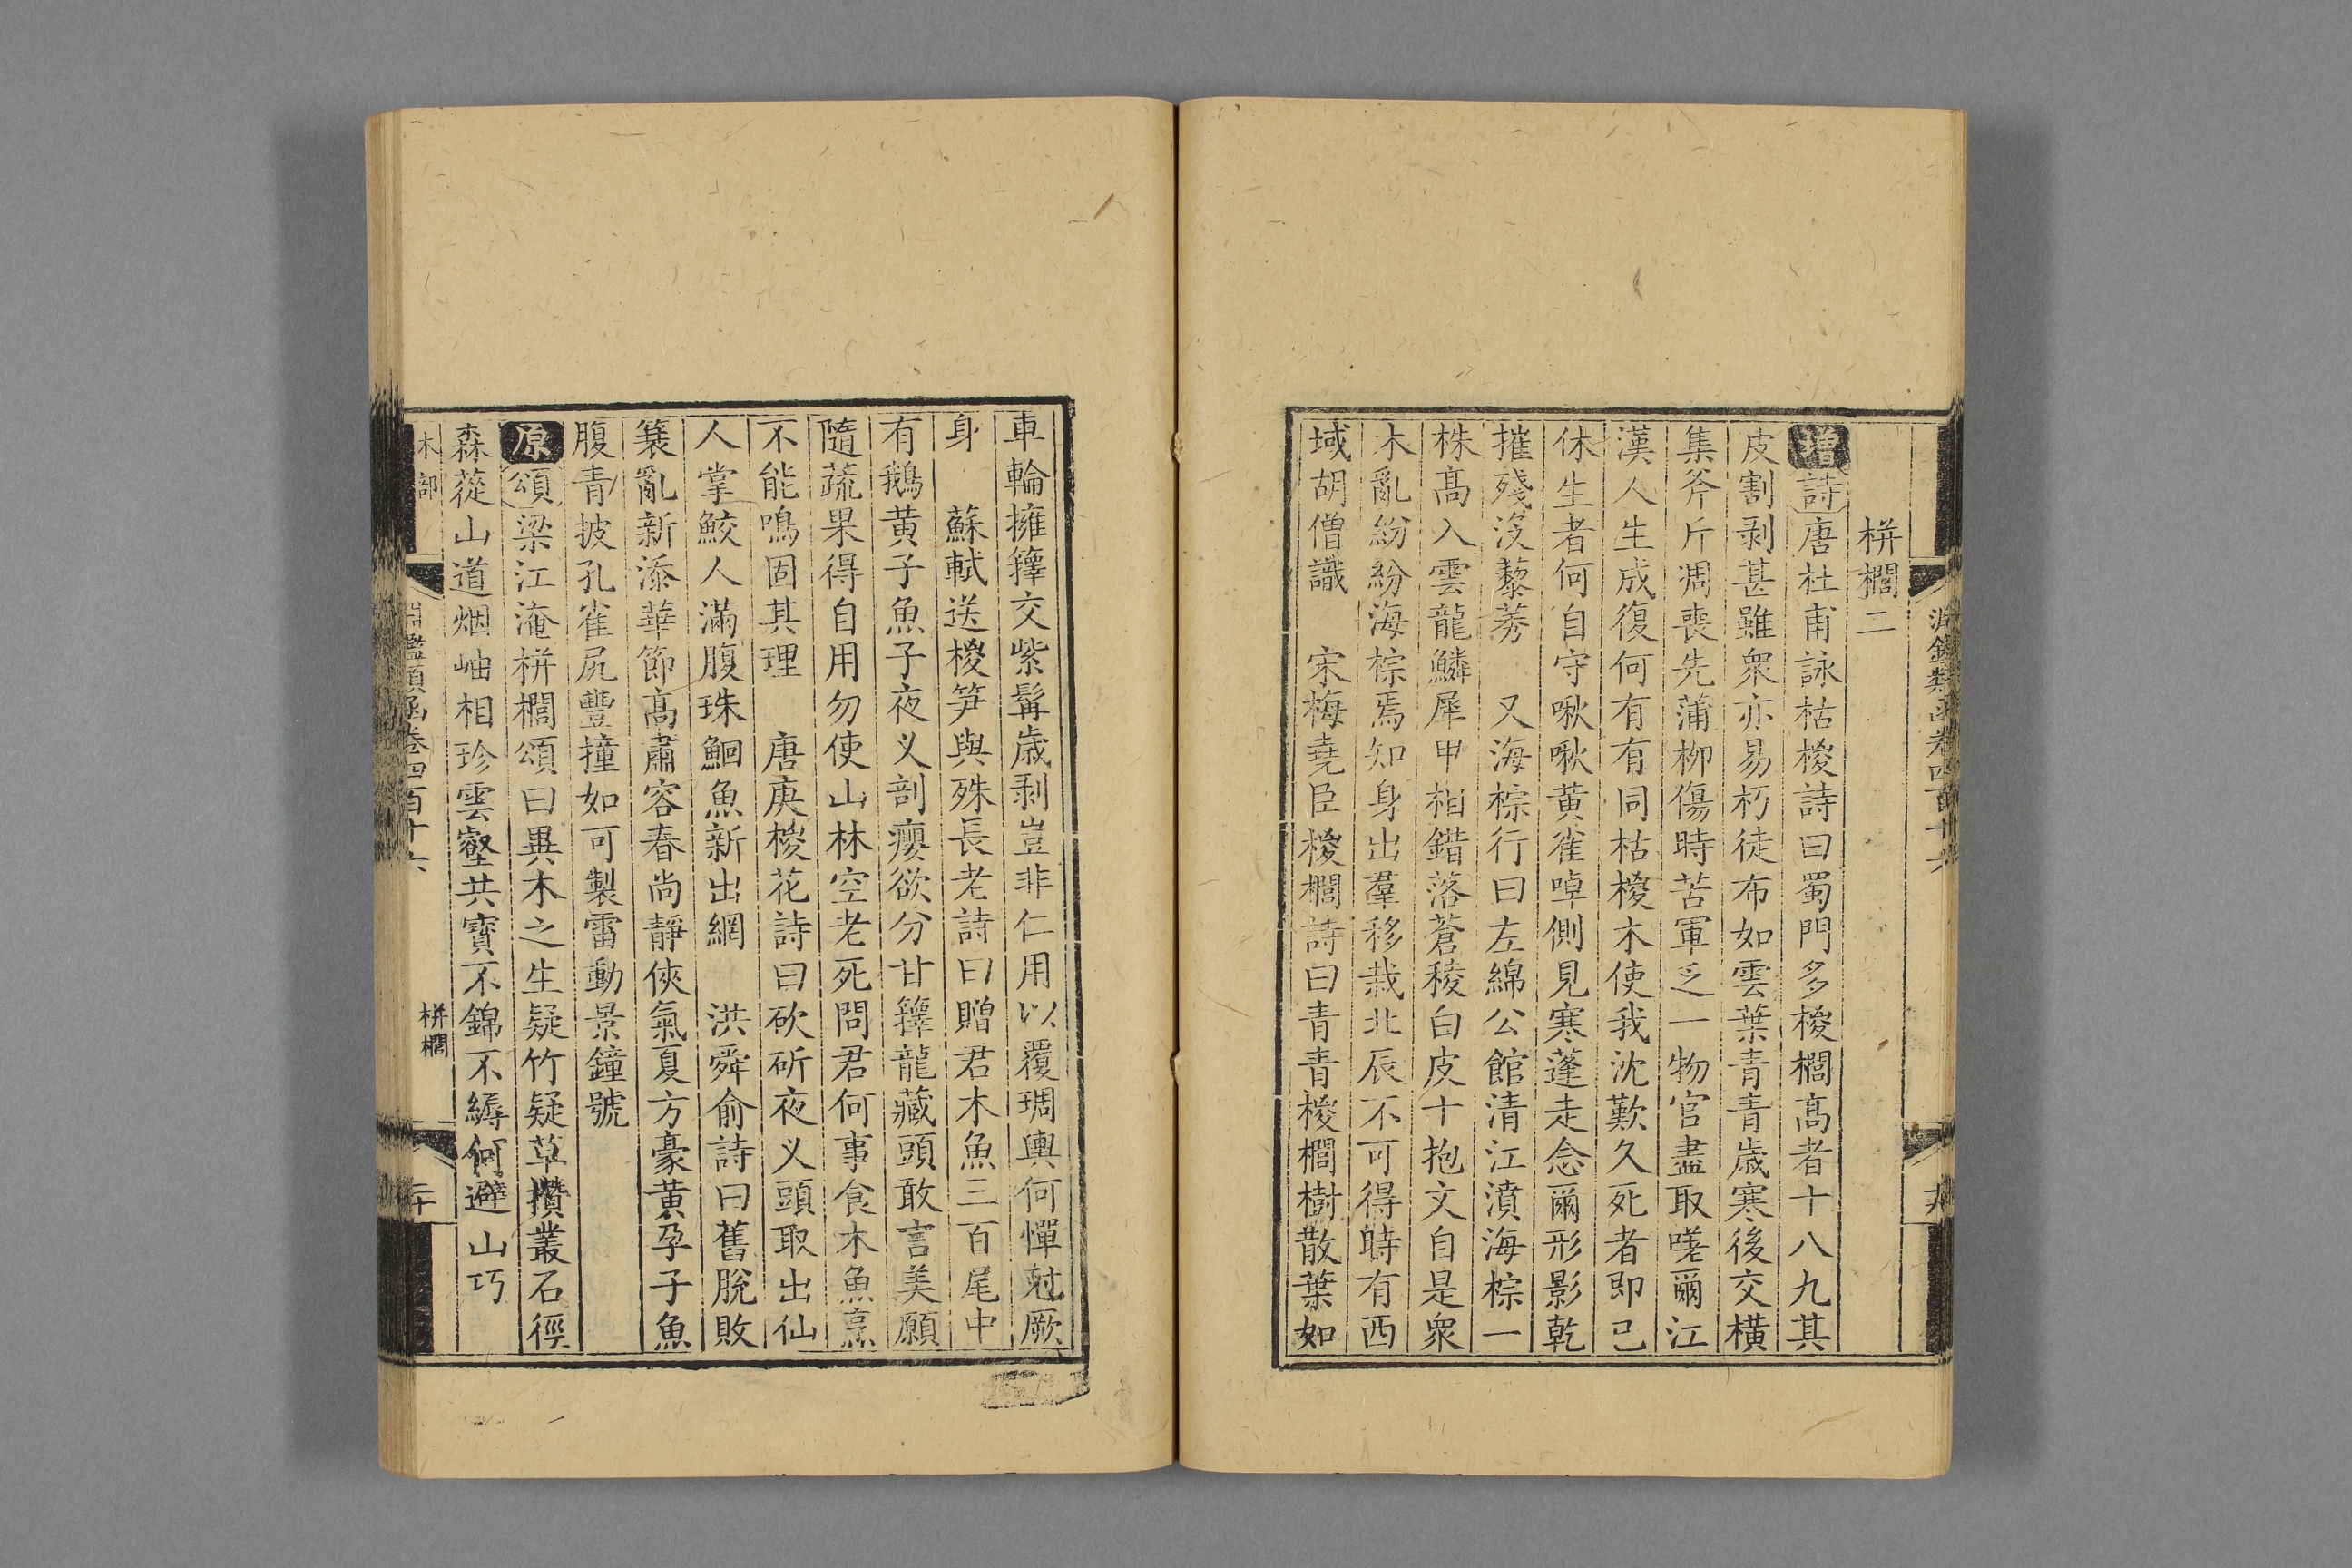 淵鑑類函卷四百十六
栟櫚二
增詩唐杜甫詠枯椶詩曰蜀門多椶櫚高者十八九其
皮割剥甚雖衆亦易朽徒布如雲葉青青歲寒後交橫
集斧斤凋喪先蒲柳傷時苦軍乏一物官盡取嗟爾江
漢人生成復何有有同枯椶木使我沈歎久死者即已
休生者何自守啾啾黃雀啅側見寒蓬走念爾形影乾
摧殘沒藜莠　又海棕行曰左綿公館清江濆海棕一
株高入雲龍鱗犀甲相錯落蒼稜白皮十抱文自是衆
木亂紛紛海棕焉知身出羣移栽北辰不可得時有西
域胡僧識　宋梅堯臣椶櫚詩曰青青椶櫚樹散葉如
車輪擁籜交紫髯歲剥豈非仁用以覆琱輿何憚尅厥
身　蘇軾送椶笋與殊長老詩曰贈君木魚三百尾中
有鵝黄子魚子夜义剖癭欲分甘籜龍藏頭敢言美願
隨蔬果得自用勿使山林空老死問君何事食木魚烹
不能鳴固其理　唐庚椶花詩曰砍斫夜义頭取出仙
人掌鮫人滿腹珠鮰魚新出網　洪舜俞詩曰舊脫敗
簑亂新添華節高肅容春尚靜俠氣夏方豪黄孕子魚
腹青披孔雀尻豐撞如可製雷動景鐘號
原頌梁江淹栟櫚頌曰異木之生疑竹疑草攢叢石徑
森蓯山道烟岫相珍雲壑共寶不錦不縟何避山巧
木部
淵鑑類函卷四百十六
栟櫚
二十